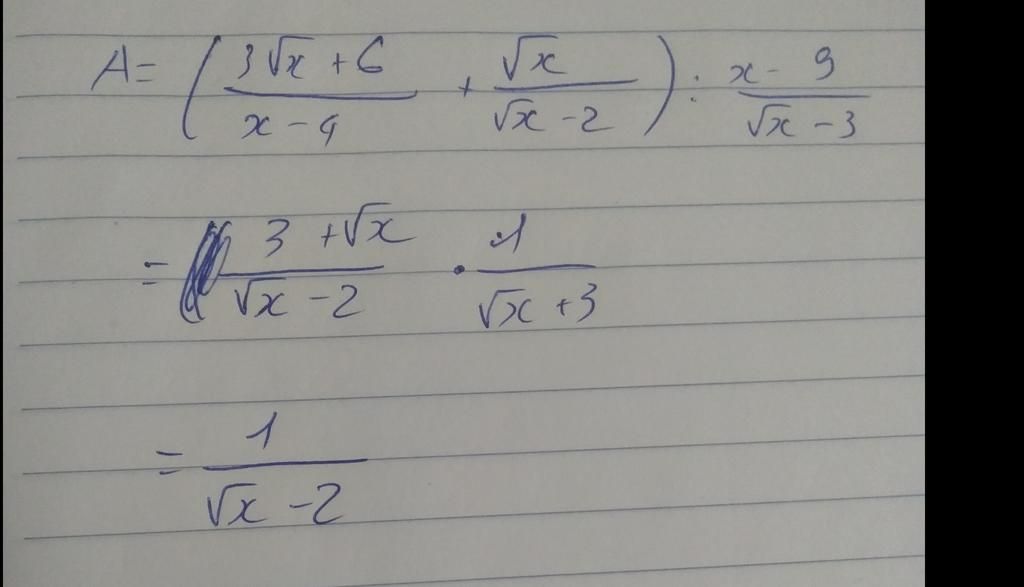 A = ( (3√x + 6)/(x - 4) + √x/(√x - 2) ) : (x - 9)/(√x - 3)
= (3 + √x)/(√x - 2) · 1/(√x + 3)
= 1/(√x - 2)